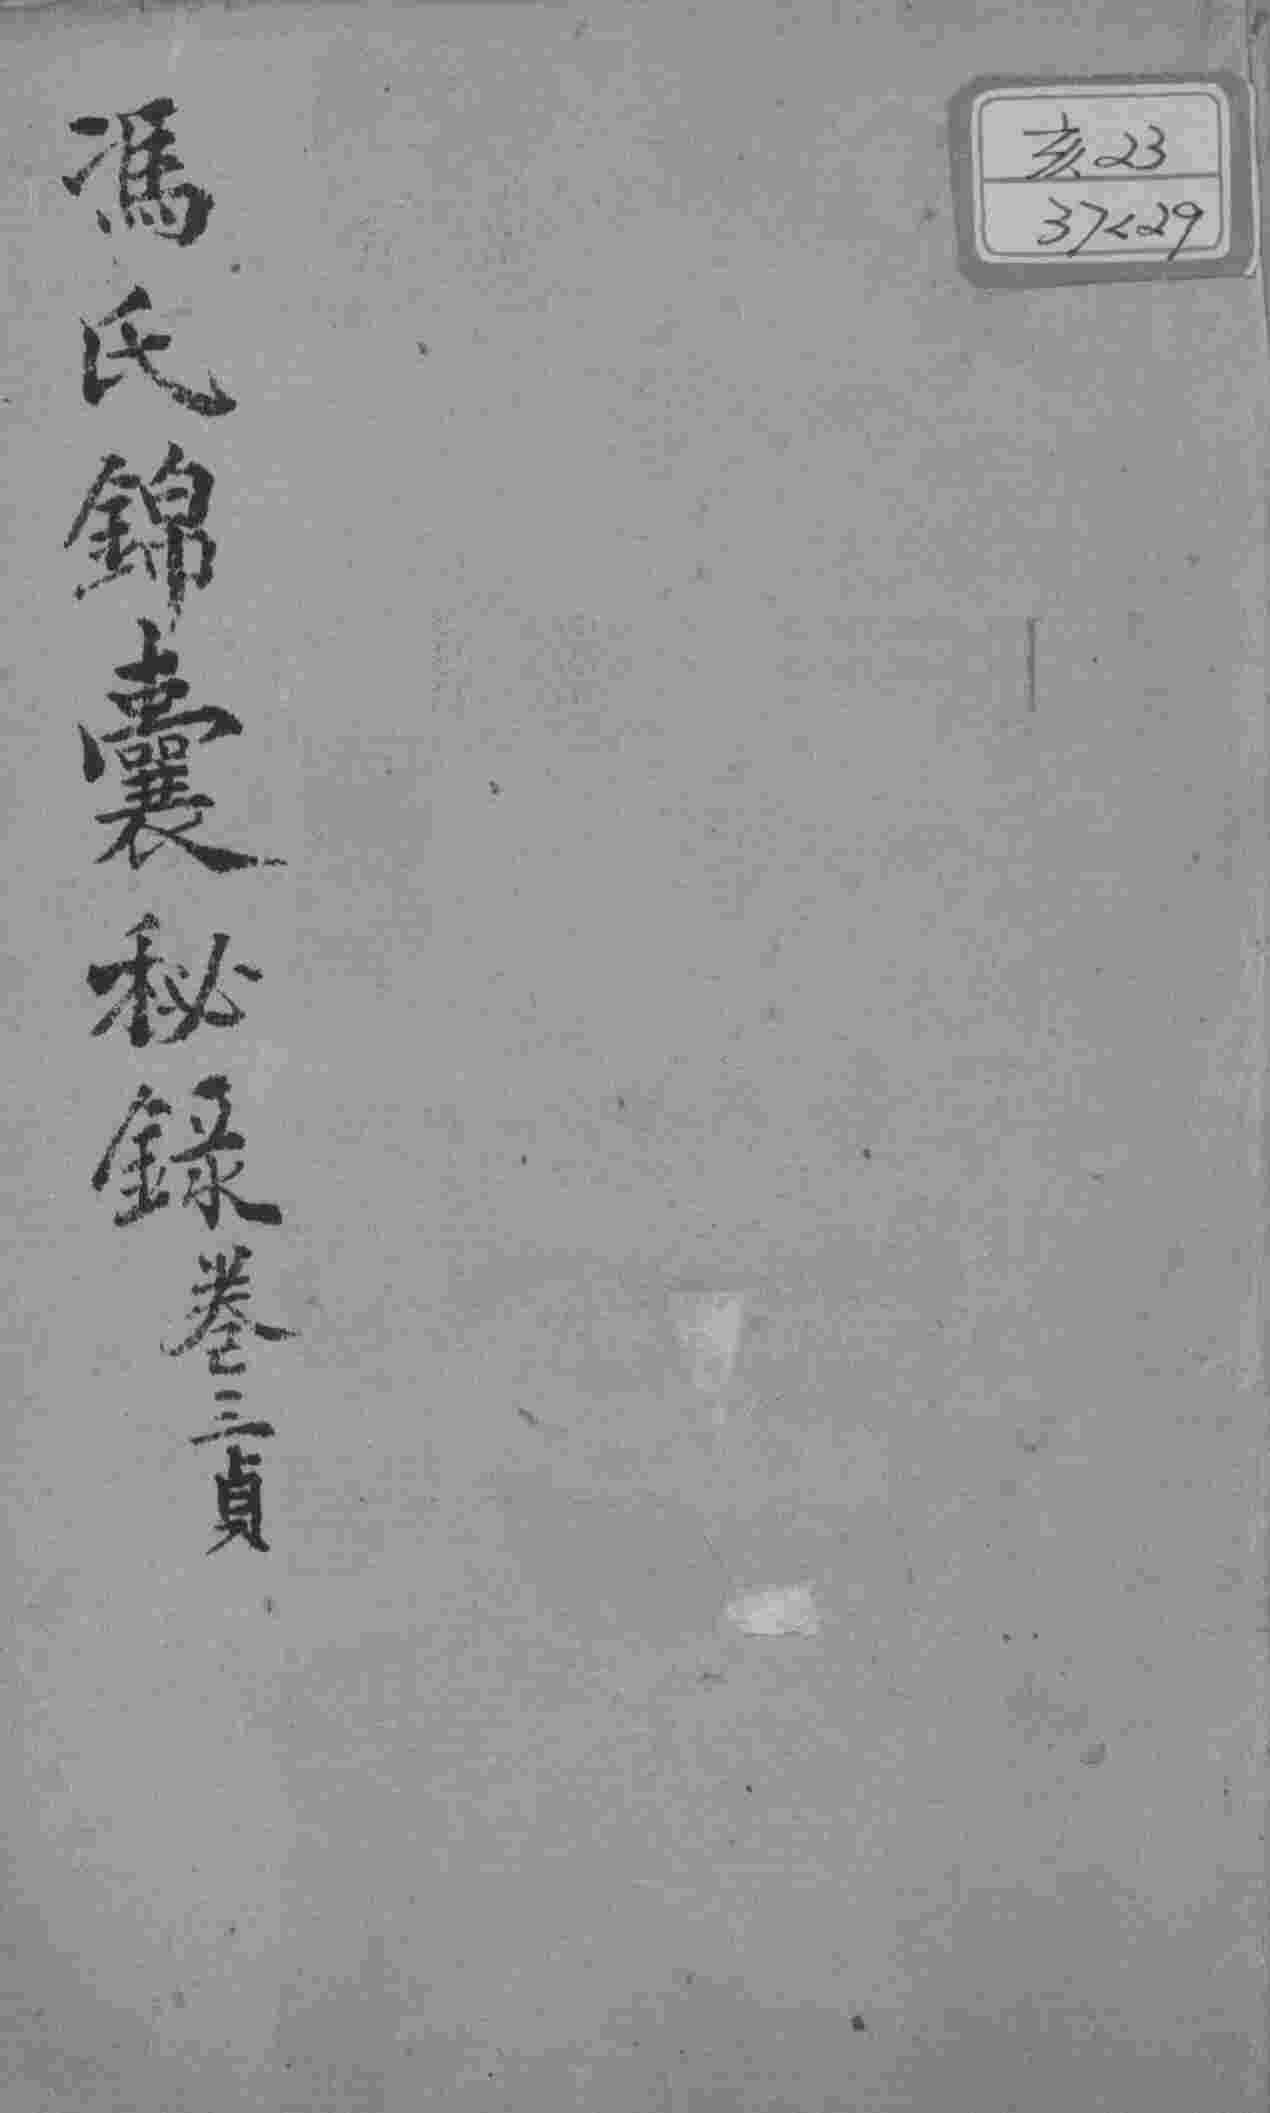 亥23
37<29
馮氏錦囊秘錄卷三貞